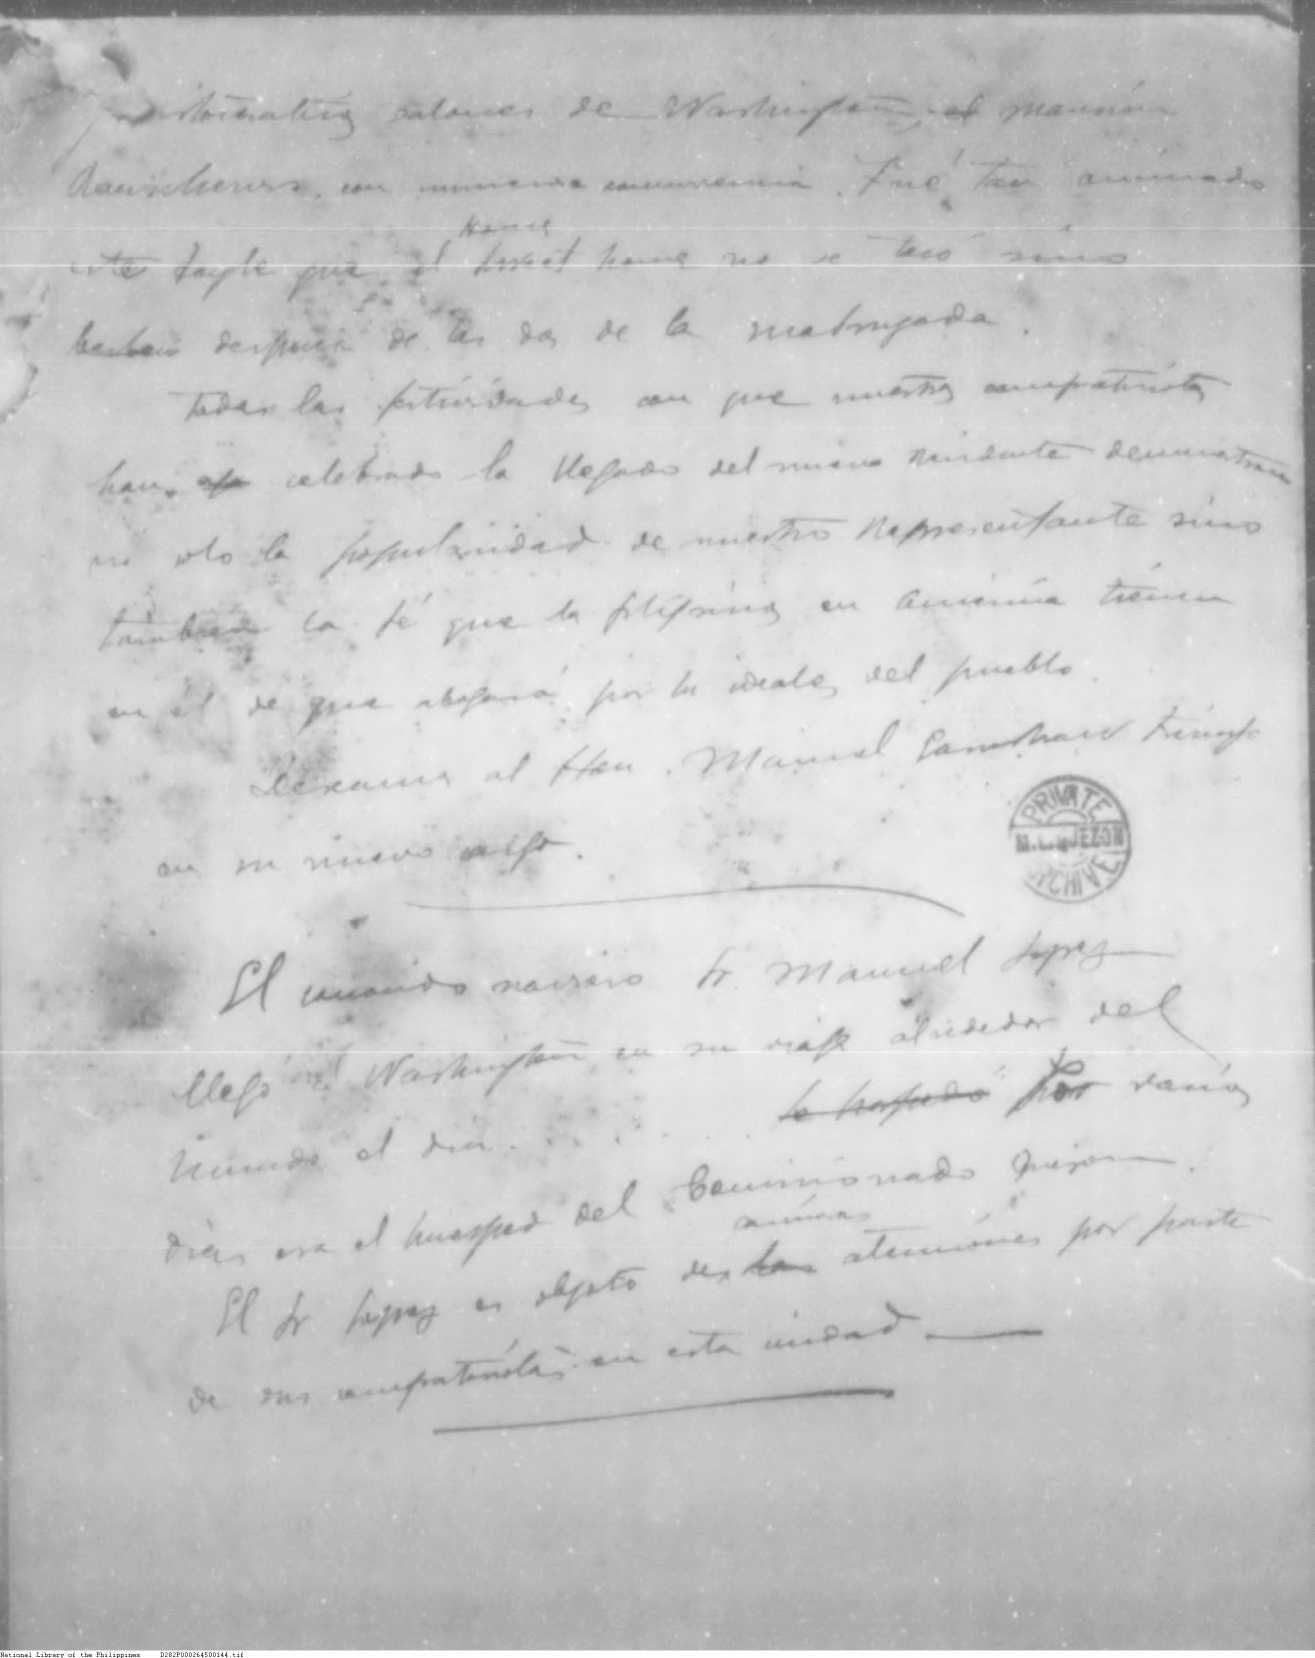 aristocráticos salones de Washington, el mansión
Rauschers, con inmensa concurrencia. Fué tan animado
Home
este baile que el sweet home no se tocó sino
hasta después de las dos de la madrugada.
Todas las festividades con que nuestros compatriotas
han celebrado la llegada del nuevo residente demuestran
no solo la popularidad de nuestro Representante sino
también la fé que los filipinos en América tienen
en él de que abogará por los ideales del pueblo.
Deseamos al Hon. Manuel Earnshaw
en su nuevo cargo.
PRIVATE
M. L. QUEZON
ARCHIVE
El conocido naviero Sr. Manuel Lopez
llegó Washington en su viaje alrededor del
mundo el dia . . . . . . . . le hospedó Por varios
dias era el huesped del Comisionado Quezon.
El Sr Lopez es objeto de las atenciones por parte
de sus compatriotas en esta ciudad
National Library of the Philippines D282P000264500144.tif